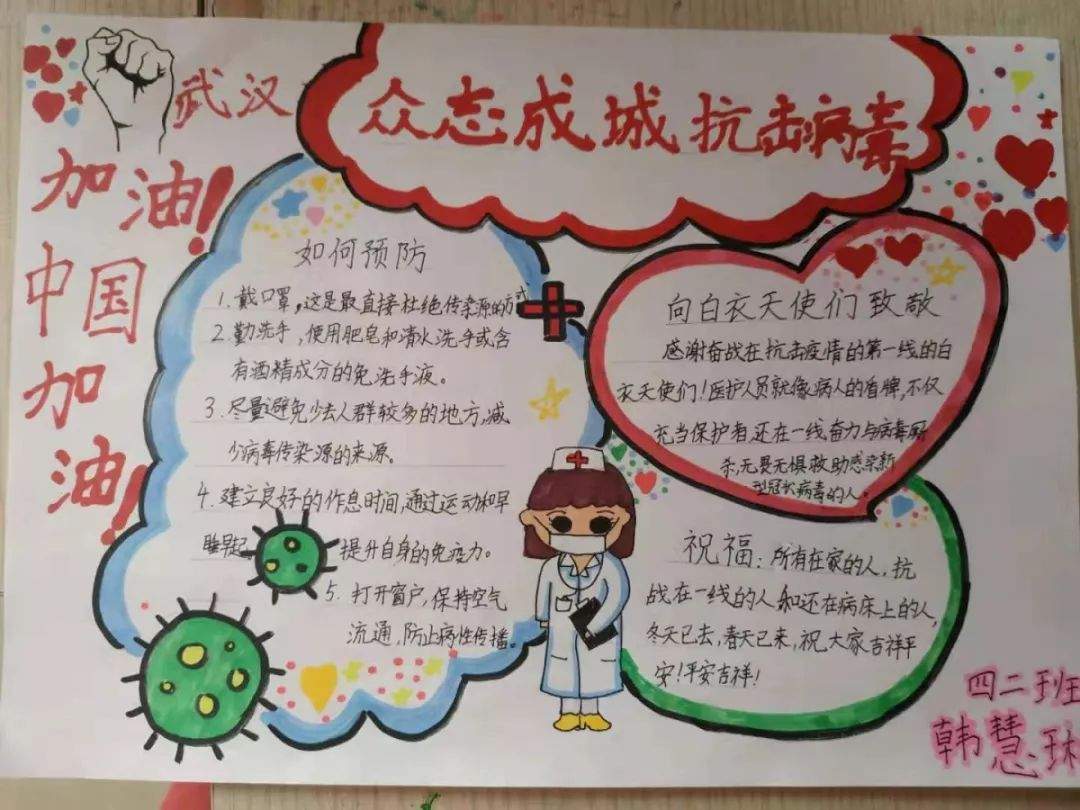 武汉
加油!
中国
加
油!
众志成城抗击病毒
如何预防
1. 戴口罩,这是最直接杜绝传染源的方式
2. 勤洗手,使用肥皂和清水洗手或含
有酒精成分的免洗手液。
3. 尽量避免少去人群较多的地方,减
少病毒传染源的来源。
4. 建立良好的作息时间,通过运动和早
睡早起 提升自身的免疫力。
5. 打开窗户,保持空气
流通,防止病性传播。
向白衣天使们致敬
感谢奋战在抗击疫情的第一线的白
衣天使们!医护人员就像病人的盾牌,不仅
充当保护者还在一线奋力与病毒厮
杀,无畏无惧救助感染新
型冠状病毒的人。
祝福:所有在家的人,抗
战在一线的人和还在病床上的人,
冬天已去,春天已来,祝大家吉祥平
安!平安吉祥!
四二班
韩慧琳